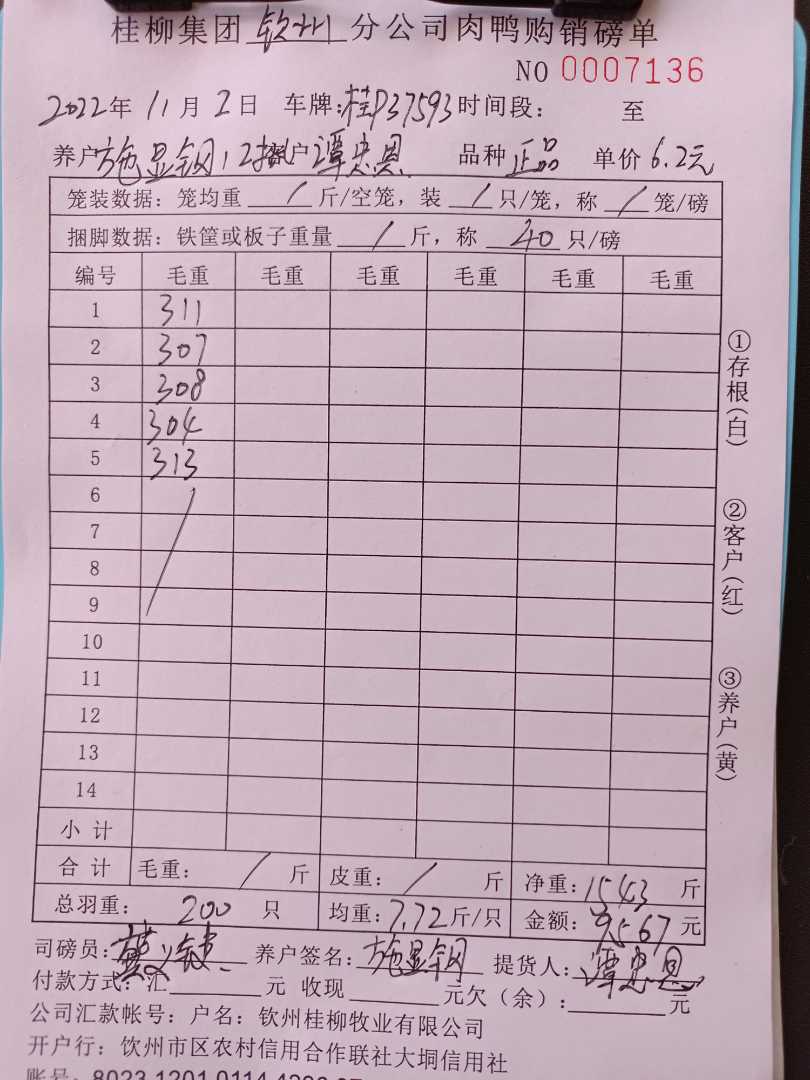 桂柳集团 钦州 分公司肉鸭购销磅单
NO 0007136
2022年 11月 2日 车牌:桂P37593 时间段: 至
养户 施显钢 12 户 谭忠恩 品种 正品 单价 6.2元
笼装数据: 笼均重 / 斤/空笼, 装 / 只/笼, 称 / 笼/磅
捆脚数据: 铁筐或板子重量 / 斤, 称 40 只/磅
编号 毛重 毛重 毛重 毛重 毛重 毛重
1 311
2 307
3 308
4 304
5 313
6
7
8
9
10
11
12
13
14
小计
合计 毛重: / 斤 皮重: / 斤 净重: 1543 斤
总羽重: 200 只 均重: 7.72 斤/只 金额: 9567 元
司磅员: 养户签名: 施显钢 提货人: 谭忠恩
付款方式: 汇 元 收现 元欠(余): 元
公司汇款帐号: 户名: 钦州桂柳牧业有限公司
开户行: 饮州市区农村信用合作联社大垌信用社
账号: 8023 1201 0114 4200 67
①存根(白)
②客户(红)
③养户(黄)